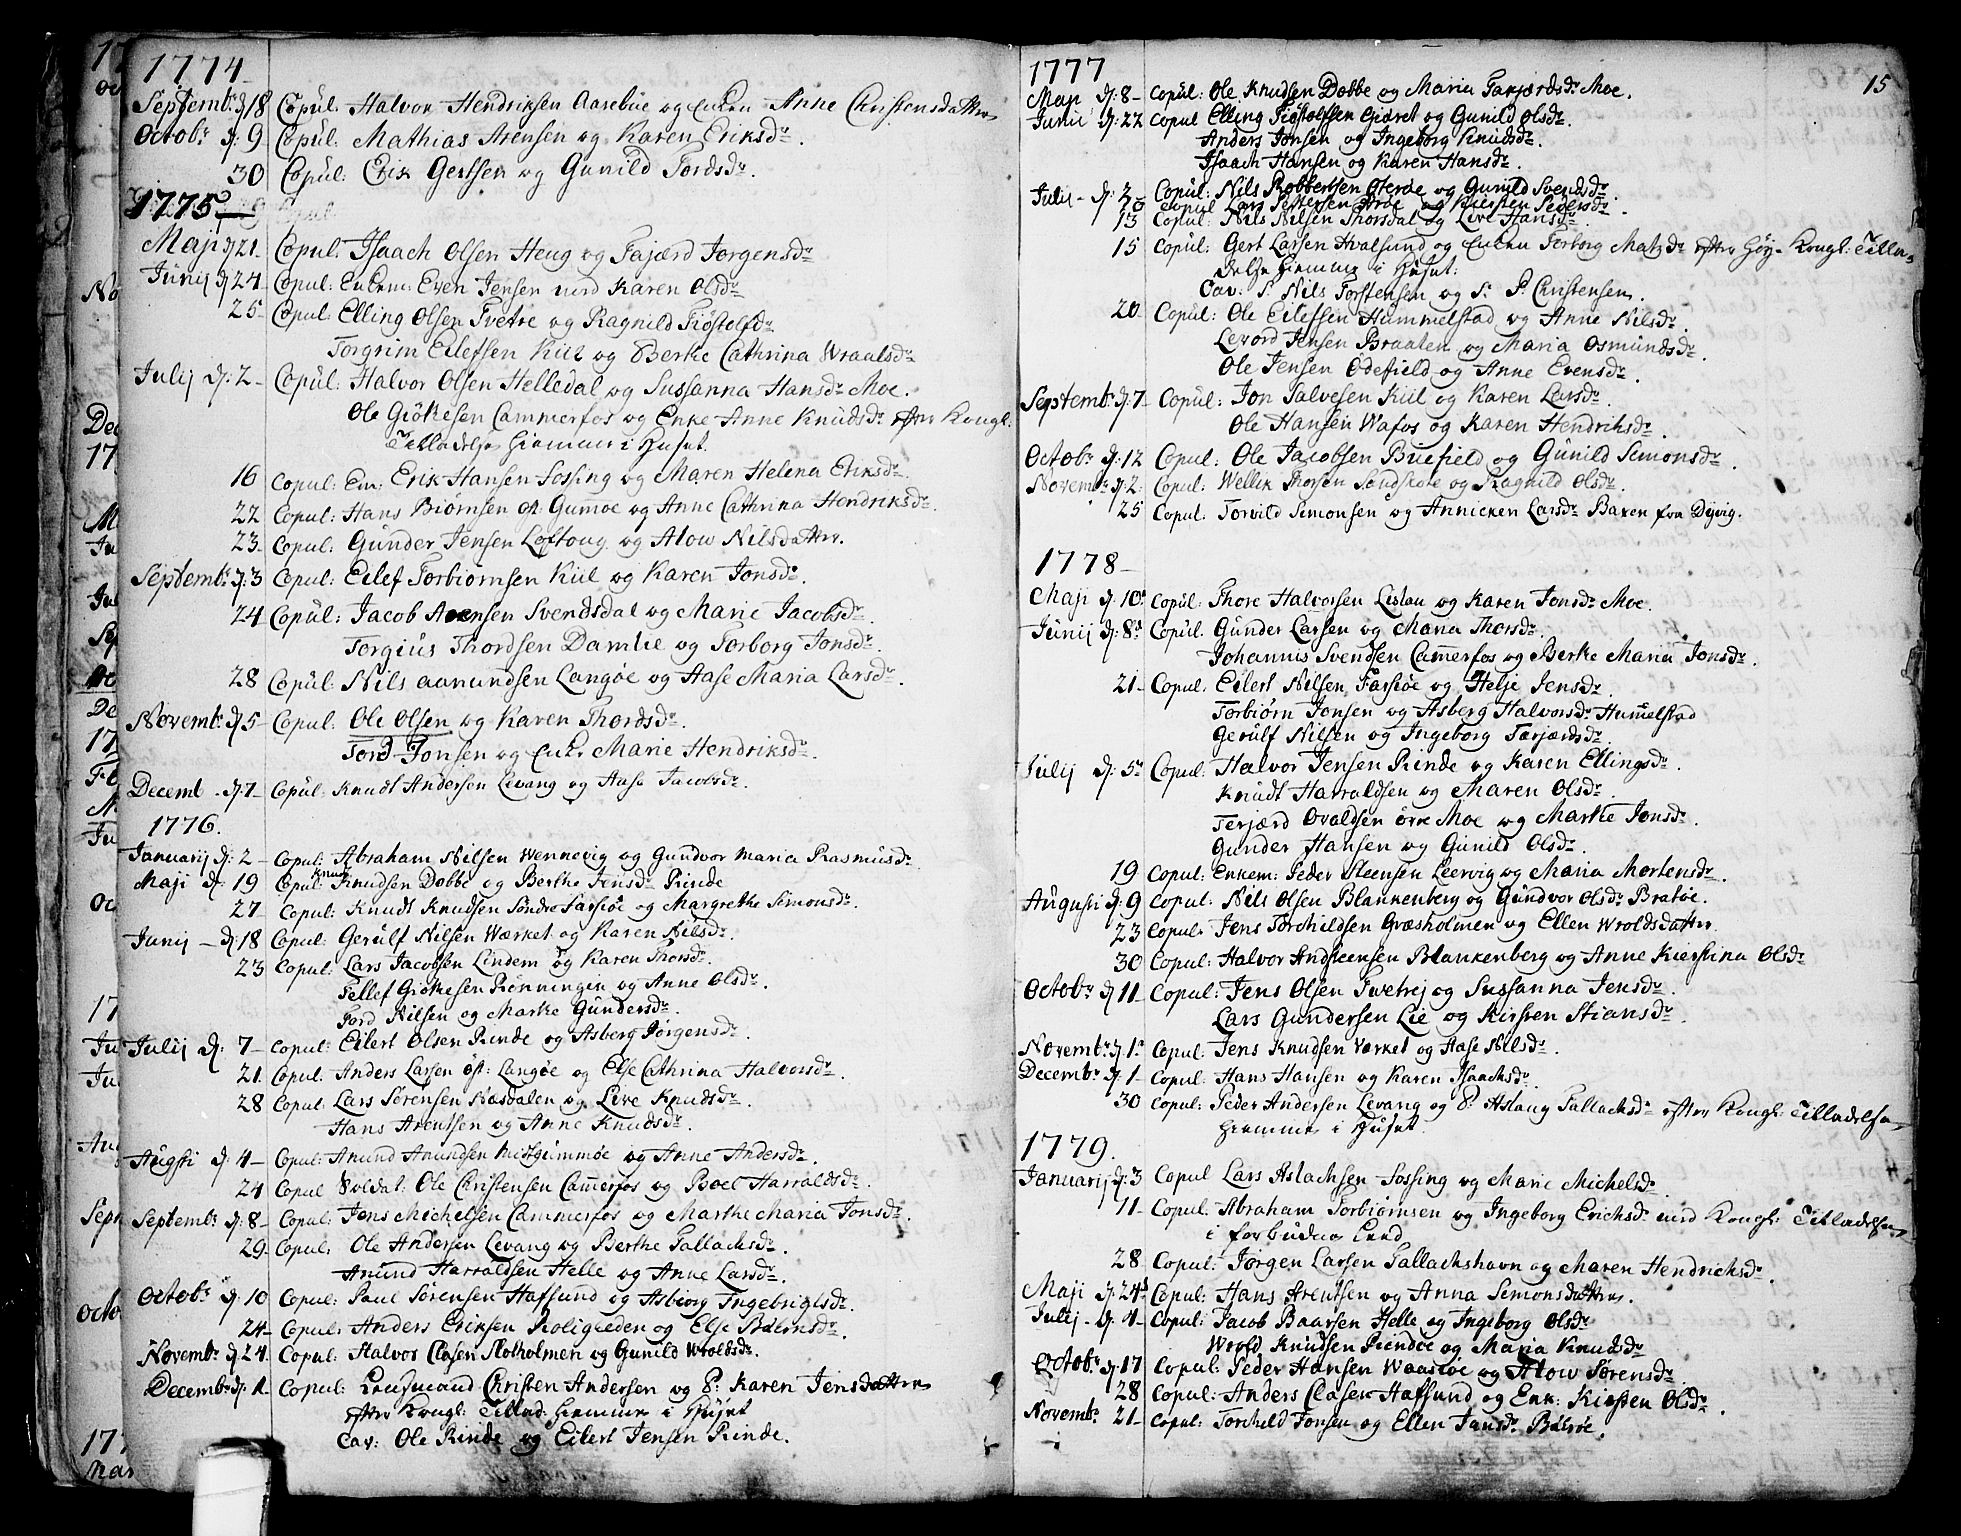 1774
Septembr d. 18 Copul. Halvor Hendriksen Aasebüe og Enken Anne Christensdatter
Octobr d. 9 Copul: Mathias Arensen og Karen Eriksdr.
30 Copul: Erik Gertsen og Gunild Tordsdr.
1775
Maji d. 21. Copul. Isaach Olsen Heug og Tajærd Jorgensdr
Junij d. 24 Copul: Enkem: Even Jensen med Karen Olsdr
25 Copul Elling Olsen Tvetre og Ragnild Tiöstolfdr
Torgrim Eilefsen Kiil og Berte Cathrina Wraalsdr
Julij d. 2 Copul: Halvor Olsen Helledal og Sussanna Hansdr Moe.
Ole Giökesen Cammerfos og Enke Anne Knudsdr efter Kongl:
Tilladelse hiemme i Huset.
16 Copul: Em: Erik Hansen Sossing og Maren Helena Eriksdr
22 Copul: Hans Biörnsen Gumöe og Anne Cathrina Hendriksdr.
23 Copul: Gunder Jensen Loftoug og Alow Nilsdatter.
Septembr d. 3 Copul: Eilef Torbiörnsen Kiil og Karen Jonsdr.
24 Copul: Jacob Svendsdal og Marie Jacobsdr.
Torgius Thordsen Damlie og Torborg Jonsdr.
28 Copul: Nils Aanundsen Langöe og Aase Maria Larsdr.
Novembr d. 5 Copul: Ole Olsen og Karen Thordsdr.
Tord Jonsen og Enke Marie Hendriksdr.
Decemb d. 7 Copul: Knudt Andersen Levang og Aase Jacobsdr.
1776.
Januarij d: 2 Copul: Abraham Nilsen Wennevig og Gundvor Maria Rasmusdr
Maji d. 19 Copul: Knud Knudsen Dobbe og Berthe Jensdr Rinde
27 Copul: Knudt Knudsen Söndre Farsiöe og Margrethe Simonsdr.
Junij d. 18 Copul: Gerülf Nilsen Wærket og Karen Nilsdr.
23 Copul: Lars Jacobsen Lindem og Karen Thorsdr.
Tellef Giökesen Rönningen og Anne Olsdr.
Tord Nilsen og Marthe Gundersdr.
Julij d. 7 Copul: Eilert Olsen Rinde og Asberg Jörgensdr.
21. Copul: Anders Larsen öst: Langöe og Else Cathrina Halvorsdr.
28 Copul: Lars Sörensen Næsdalen og Live Knudsdr.
Hans Arentsen og Anne Knudsdr.
Augsti d. 4 Copul: Anund Aanundsen og Anne Andersdr.
24 Copul Soldat: Ole Christensen Camerfos og Boel Harraldsdr.
Septembr d. 8 Copul: Jens Michelsen Cammerfos og Marthe Maria Jonsdr.
29 Copul: Ole Andersen Levang og Berthe Tallachsdr.
Anund Harraldsen Helle og Anne Larsdr.
Octobr d. 10 Copul: Paul Sörensen Haffund og Asbiorg Ingebrigtsdr.
24 Copul: Anders Eriksen Roligeden og Else Börnsdr.
Novembr d. 24 Copul: Halvor Clasen Slotholmen og Gunild Wroldsdr.
Decembr d. 1 Copul: Lensmand Christen Andersen og P: Karen Jensdatter
efter Kongl: Tillad: hiemme i Huset
Cav: Ole Rinde og Eilert Jensen Rinde.
1777
15
Maji d. 8 Copul: Ole Knudsen Dobbe og Maria Tarjærdsdr Moe.
Junii d. 22 Copul Elling Tiöstolfsen Giæret og Gunild Olsdr.
Anders Jonsen og Ingeborg Knudsdr.
Isaach Hansen og Karen Hansdr.
Julij d. Copul: Nils Robbertsen Oteröe og Gunild Svendsdr.
Copul Lars og Kiersten Pedersdr.
13 Copul: Nils Nilsen Thorsdal og Live Hansdr.
15 Copul: Gert Larsen Hvalsund og Enken Torborg Matsdr efter höy-Kongl: Tilla-
delse hiemme i Huset:
Cav: S: Nils Torstensen og S. P. Christensen.
20 Copul: Ole Eilefsen Hummelstad og Anne Nilsdr.
Levord Jensen Braaten og Maria Osmundsdr.
Ole Jensen Ödefield og Anne Evensdr.
Septembr d. 7 Copul: Jon Salvesen Kiil og Karen Larsdr.
Ole Hansen Wafos og Karen Hendriksdr.
Octobr d. 12 Copul: Ole Jacobsen Büefield og Gunild Simonsdr.
Novembr d. 2 Copul: Wellik Thorsen Sandskole og Ragnild Olsdr.
25 Copul: Torvild Simonsen og Annicken Larsdr Baren fra Dijvig.
1778
Maji d. 10 Copul: Thore Halvorsen Lislau og Karen Jonsdr Moe.
Junij d. 8 Copul. Gunder Larsen og Maria Thorsdr.
Johannis Svendsen Camerfos og Berthe Maria Jonsdr.
21 Copul. Eilert Nilsen Farsiöe og Helje Jensdr.
Torbiörn Jonsen og Asberg Halvorsdr Hummelstad
Gerülf Nilsen og Ingeborg Tarjærdsdr.
Julij d. 5 Copul: Halvor Jensen Rinde og Karen Ellingsdr.
Knudt Harraldsen og Maren Olsdr.
Terjærd Ovaldsen övre Moe og Marthe Jonsdr.
Gunder Hansen og Gunild Olsdr.
19 Copul: Enkem: Peder Steensen Leervig og Maria Mortensdr.
Augusti d. 9 Copul: Nils Olsen Blankenberg og Gundvor Olsdr Bratöe.
23 Copul. Jens Torchildsen Græsholmen og Ellen Wroldsdatter
30 Copul: Halvor Andsteensen Blankenberg og Anne Kierstina Olsdr
Octobr d. 11 Copul: Jens Olsen Tvetrej og Sussanna Jensdr.
Lars Gundersen Lie og Kirsten Stiansdr.
Novembr d. 1 Copul: Jens Knudsen Værket og Aase Nilsdr.
Decembr d. 1 Copul: Hans Hansen og Karen Isaachsdr.
30 Copul: Peder Andersen Levang og P: Aslaug Tallachsdr efter Kongl: Tilladelse
hiemme i Huset
1779.
Januarij d. 3 Copul Lars Aslachsen Sossing og Marie Michelsdr.
11 Copul. Abraham Torbiörnsen og Ingeborg Erichsdr med Kongl: Tilladelse
i forbudne Leed
28 Copul: Jörgen Larsen Tallachshavn og Maren Hendrichsdr.
Maji d. 24 Copul: Hans Arentsen og Anna Simonsdatter.
Julij d. 4 Copul: Jacob Baarsen Helle og Ingeborg Olsdr
Wrold Knudsen Rindöe og Maria Knudsdr
Octobr d. 17 Copul: Peder Hansen Waasöe og Alow Sörensdr.
28 Copul: Anders Clasen Haffund og Enk: Kirsten Olsdr.
Novembr 21 Copul: Torchild Jonsen og Ellen Jansdr Böröe.